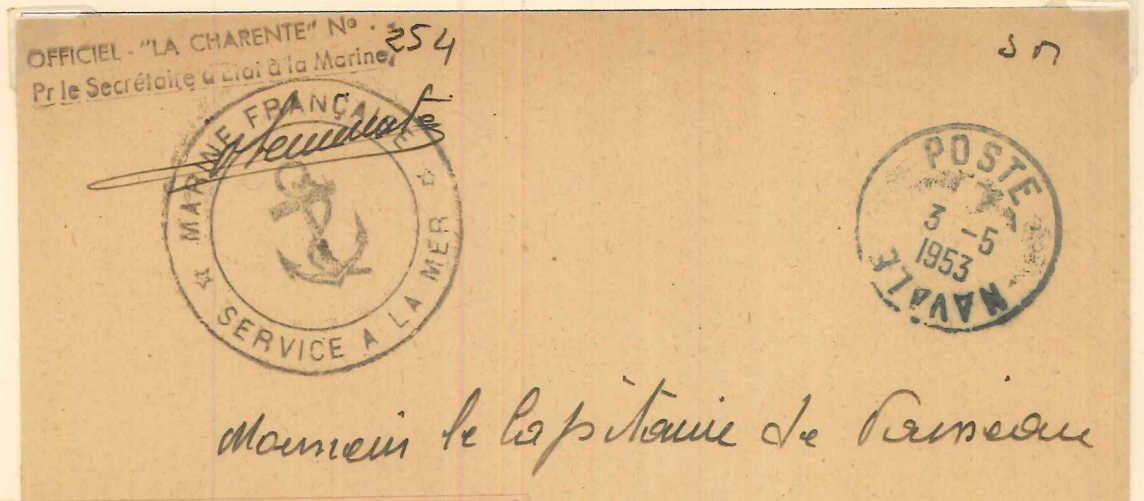 OFFICIEL - "LA CHARENTE" No 254
Pr le Secrétaire d'Etat à la Marine
MARINE FRANÇAISE
SERVICE A LA MER
S M
POSTE NAVALE
3 -5
1953
Monsieur le Capitaine de Vaisseau